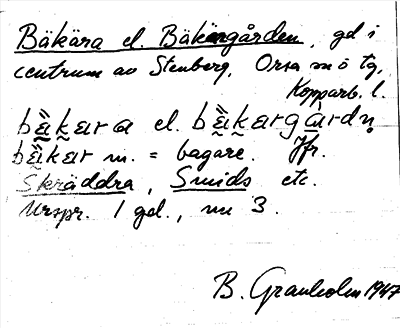 Bäkära el. Bäkergården, gd i
centrum av Stenberg, Orsa sn o tg,
Kopparb. l.
bä̀kara el. bä̀kargàrdn̥
bä̀kar m. = bagare. Jfr.
Skräddra, Smids etc.
Urspr. 1 gd., nu 3.
B. Granholm 1947